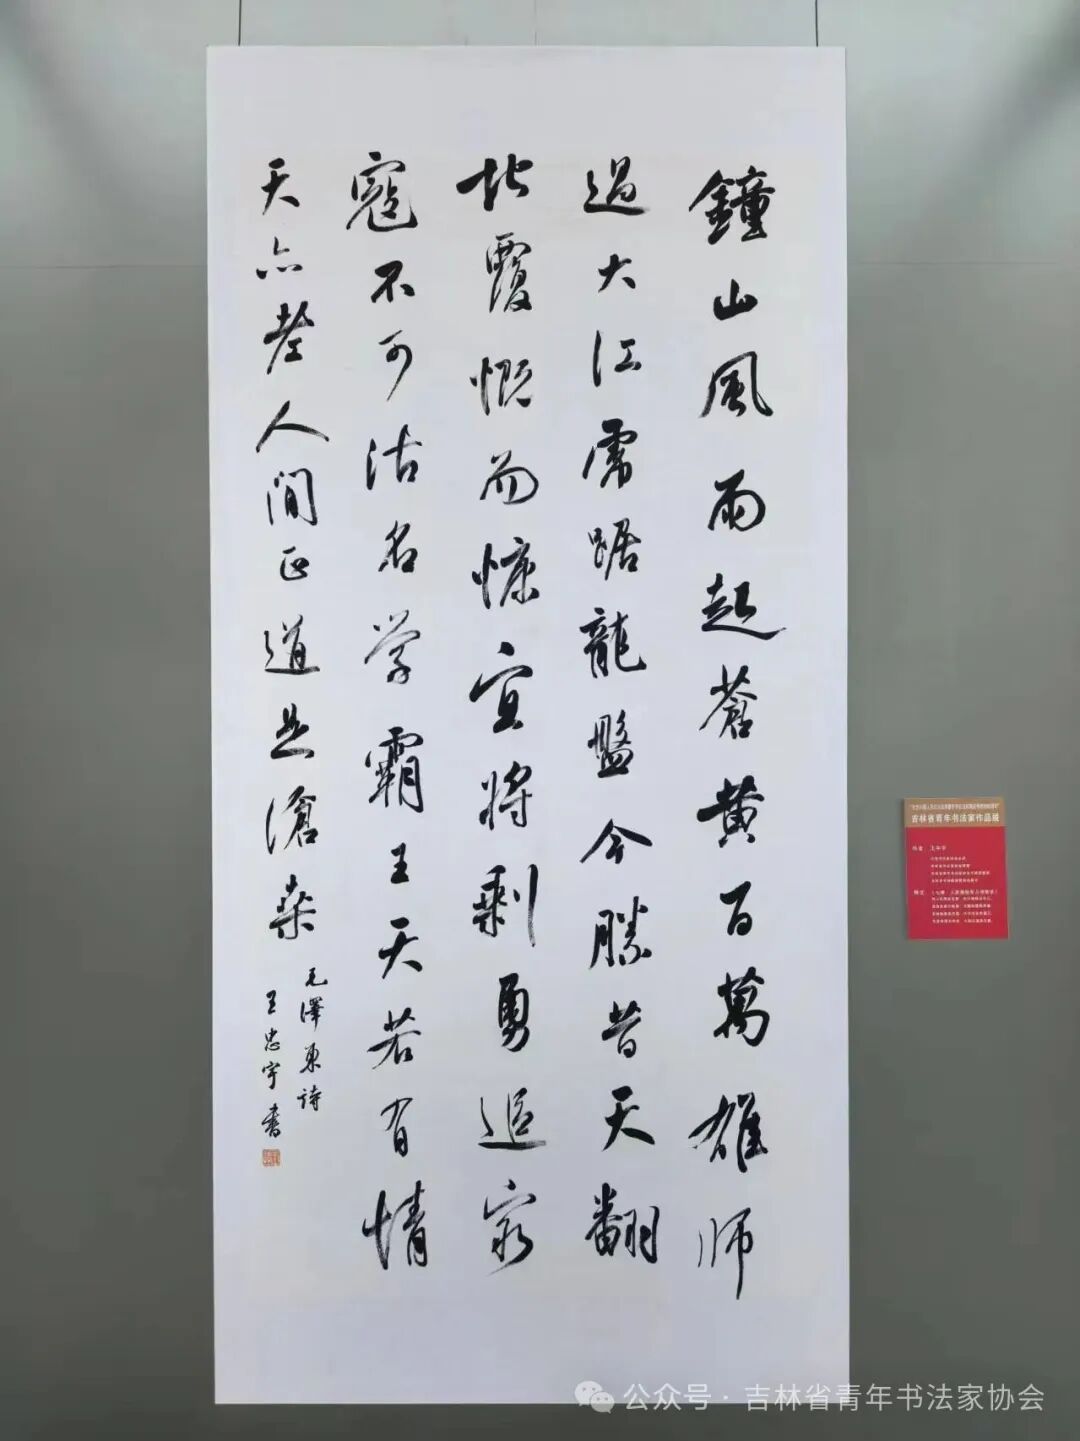 鐘山風雨起蒼黄百萬雄师
過大江虎踞龍盤今勝昔天翻
地覆慨而慷宜將剩勇追窮
寇不可沽名学霸王天若有情
天亦老人间正道是滄桑
毛澤東诗
王忠宇書
吉林省青年书法家作品展
公众号·吉林省青年书法家协会